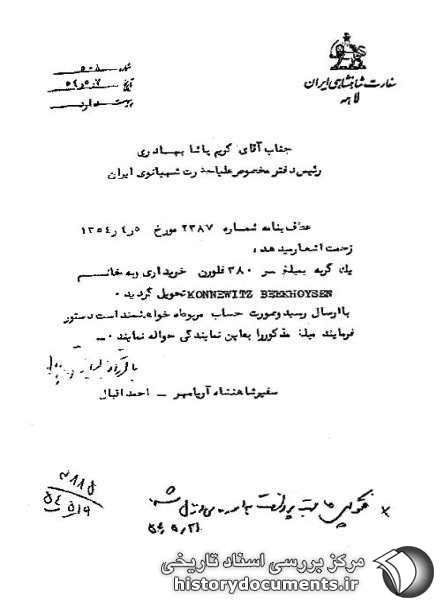 سفارت شاهنشاهی ایران
لاهه
شماره ۵۰۸
تاریخ ۵۴٫۵٫۲
پیوست دارد
جناب آقای کریم پاشا بهادری
رئیس دفتر مخصوص علیاحضرت شهبانوی ایران
عطف بنامه شماره ۲۳۸۷ مورخ ۵ر۴ر۱۳۵۴
زحمت اشعار میدهد:
یک گربه بمبلغ ۳۸۰ فلورن خریداری و به خانم
KONNEWITZ BERKHOYSEN تحویل گردید.
با ارسال رسید و صورت حساب مربوطه خواهشمند است دستور
فرمایند مبلغ مذکور را بهاین نمایندگی حواله نمایند.
سفیر شاهنشاه آریامهر - احمد اقبال
مرکز بررسی اسناد تاریخی
historydocuments.ir